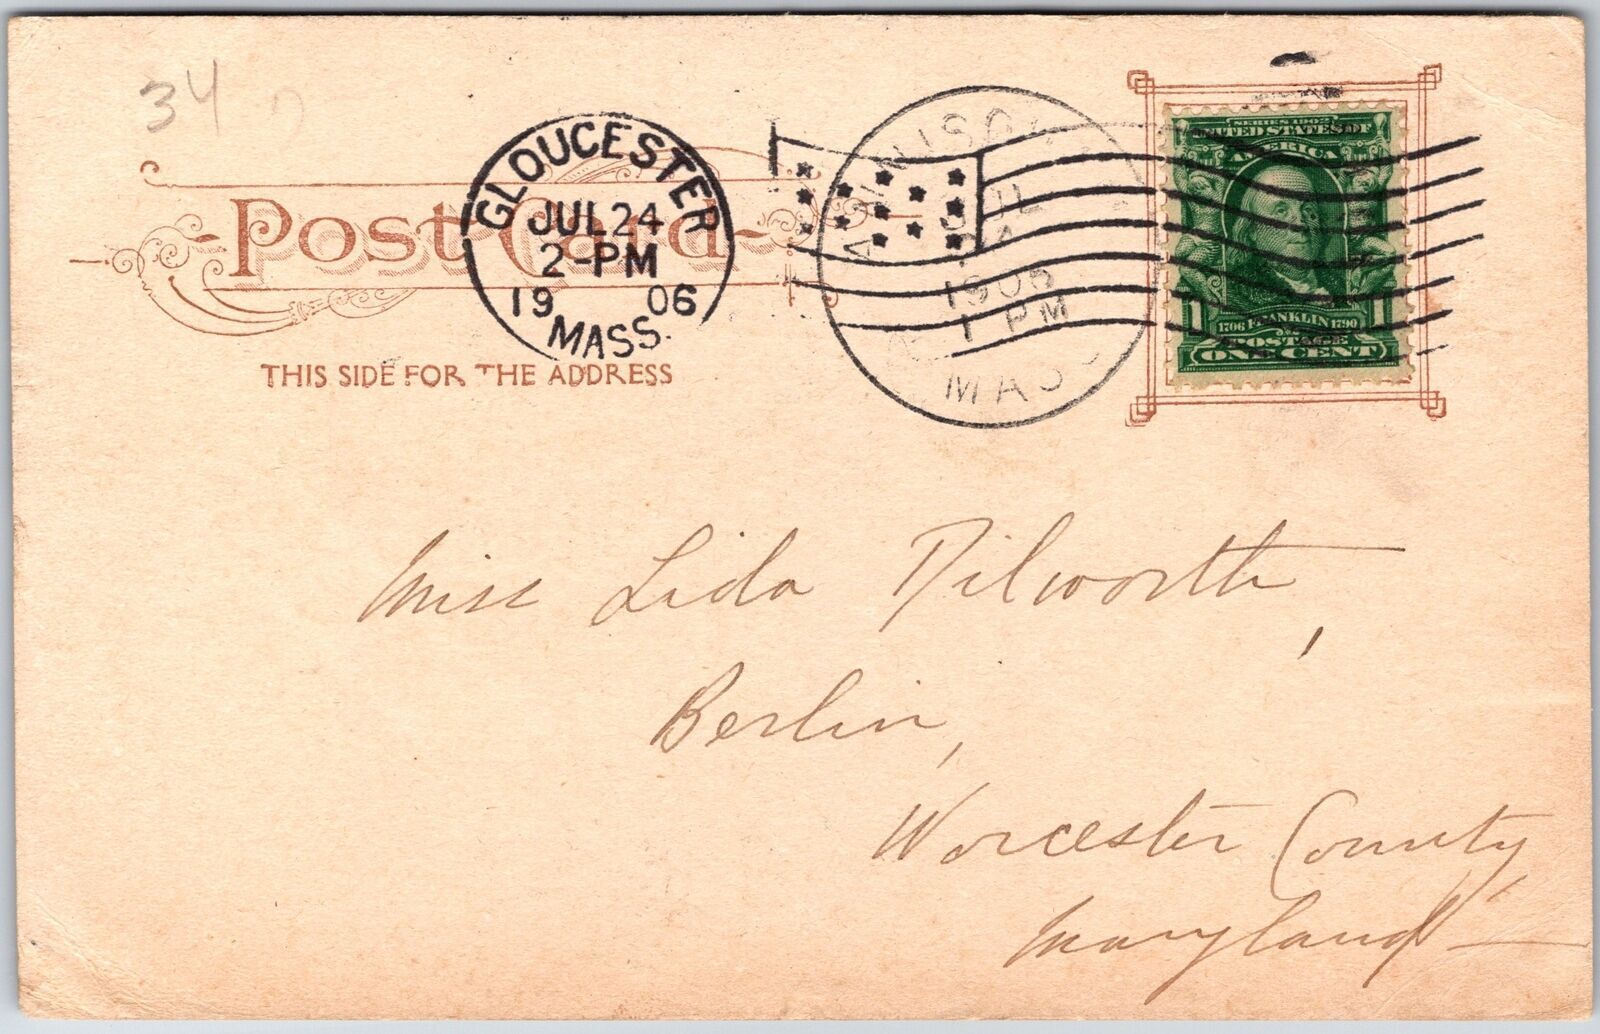 34
Post Card
THIS SIDE FOR THE ADDRESS
GLOUCESTER
JUL 24
2-PM
19 06
MASS.
1906
1 PM
MASS
SERIES 1902
UNITED STATES OF
AMERICA
1 1706 FRANKLIN 1790 1
POSTAGE
ONE CENT
Miss Lida Dilworth,
Berlin,
Worcester County,
Maryland